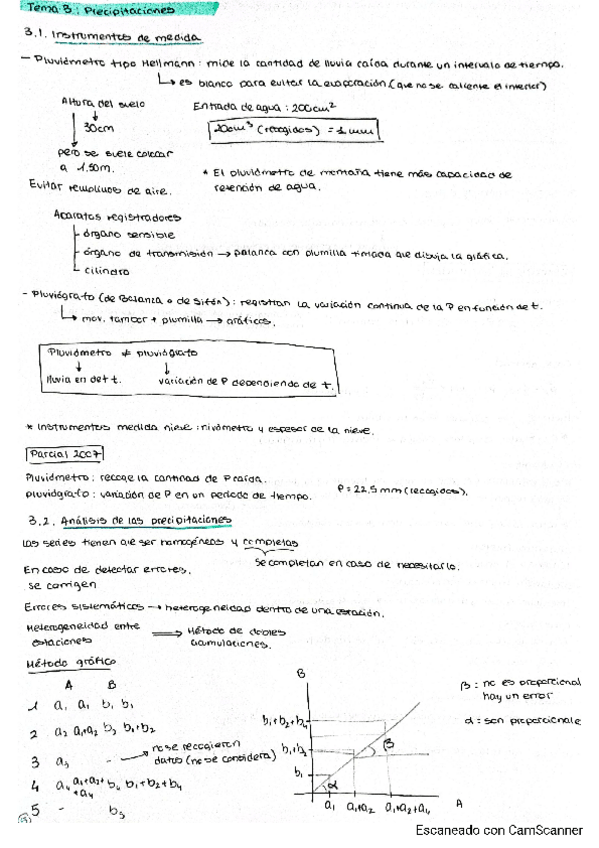 Tema 3: Precipitaciones
3.1. Instrumentos de medida
- Pluviómetro tipo Hellmann: mide la cantidad de lluvia caída durante un intervalo de tiempo.
↳ es blanco para evitar la evaporación (que no se caliente el interior)
Altura del suelo
30cm
pero se suele colocar
a 1.50m.
Evitar remolinos de aire.
Entrada de agua: 200cm²
20cm³ (recogidos) = 1mm
* El pluviómetro de montaña tiene más capacidad de
retención de agua.
Aparatos registradores
órgano sensible
órgano de transmisión → palanca con plumilla timada que dibuja la gráfica.
cilindro
- Pluviógrafo (de Balanza o de Sifón): registran la variación continua de la P en función de t.
↳ mov. tambor + plumilla → gráficos.
Pluviómetro ≠ pluviógrafo
lluvia en det t. variación de P dependiendo de t.
* Instrumentos medida nieve: nivómetro y espesor de la nieve.
Parcial 2007
Pluviómetro: recoge la cantidad de P caída.
pluviógrafo: variación de P en un periodo de tiempo. P = 22,5 mm (recogidos).
3.2. Análisis de las precipitaciones
Las series tienen que ser homogéneas y completas
Se completan en caso de necesitarlo.
En caso de detectar errores,
se corrigen
Errores sistemáticos → heterogeneidad dentro de una estación.
Heterogeneidad entre
estaciones ⟹ Método de dobles
acumulaciones.
Método gráfico
A B
1 a₁ a₁ b₁ b₁
2 a₂ a₁+a₂ b₂ b₁+b₂
3 a₃ - → no se recogieron
datos (no se considera)
4 a₄ a₁+a₂+ b₄ b₁+b₂+b₄
+a₄
5 - b₅
B
b₁+b₂+b₄
b₁+b₂
b₁
β
α
a₁ a₁+a₂ a₁+a₂+a₄ A
β: no es proporcional
hay un error
α: son proporcionale
Escaneado con CamScanner